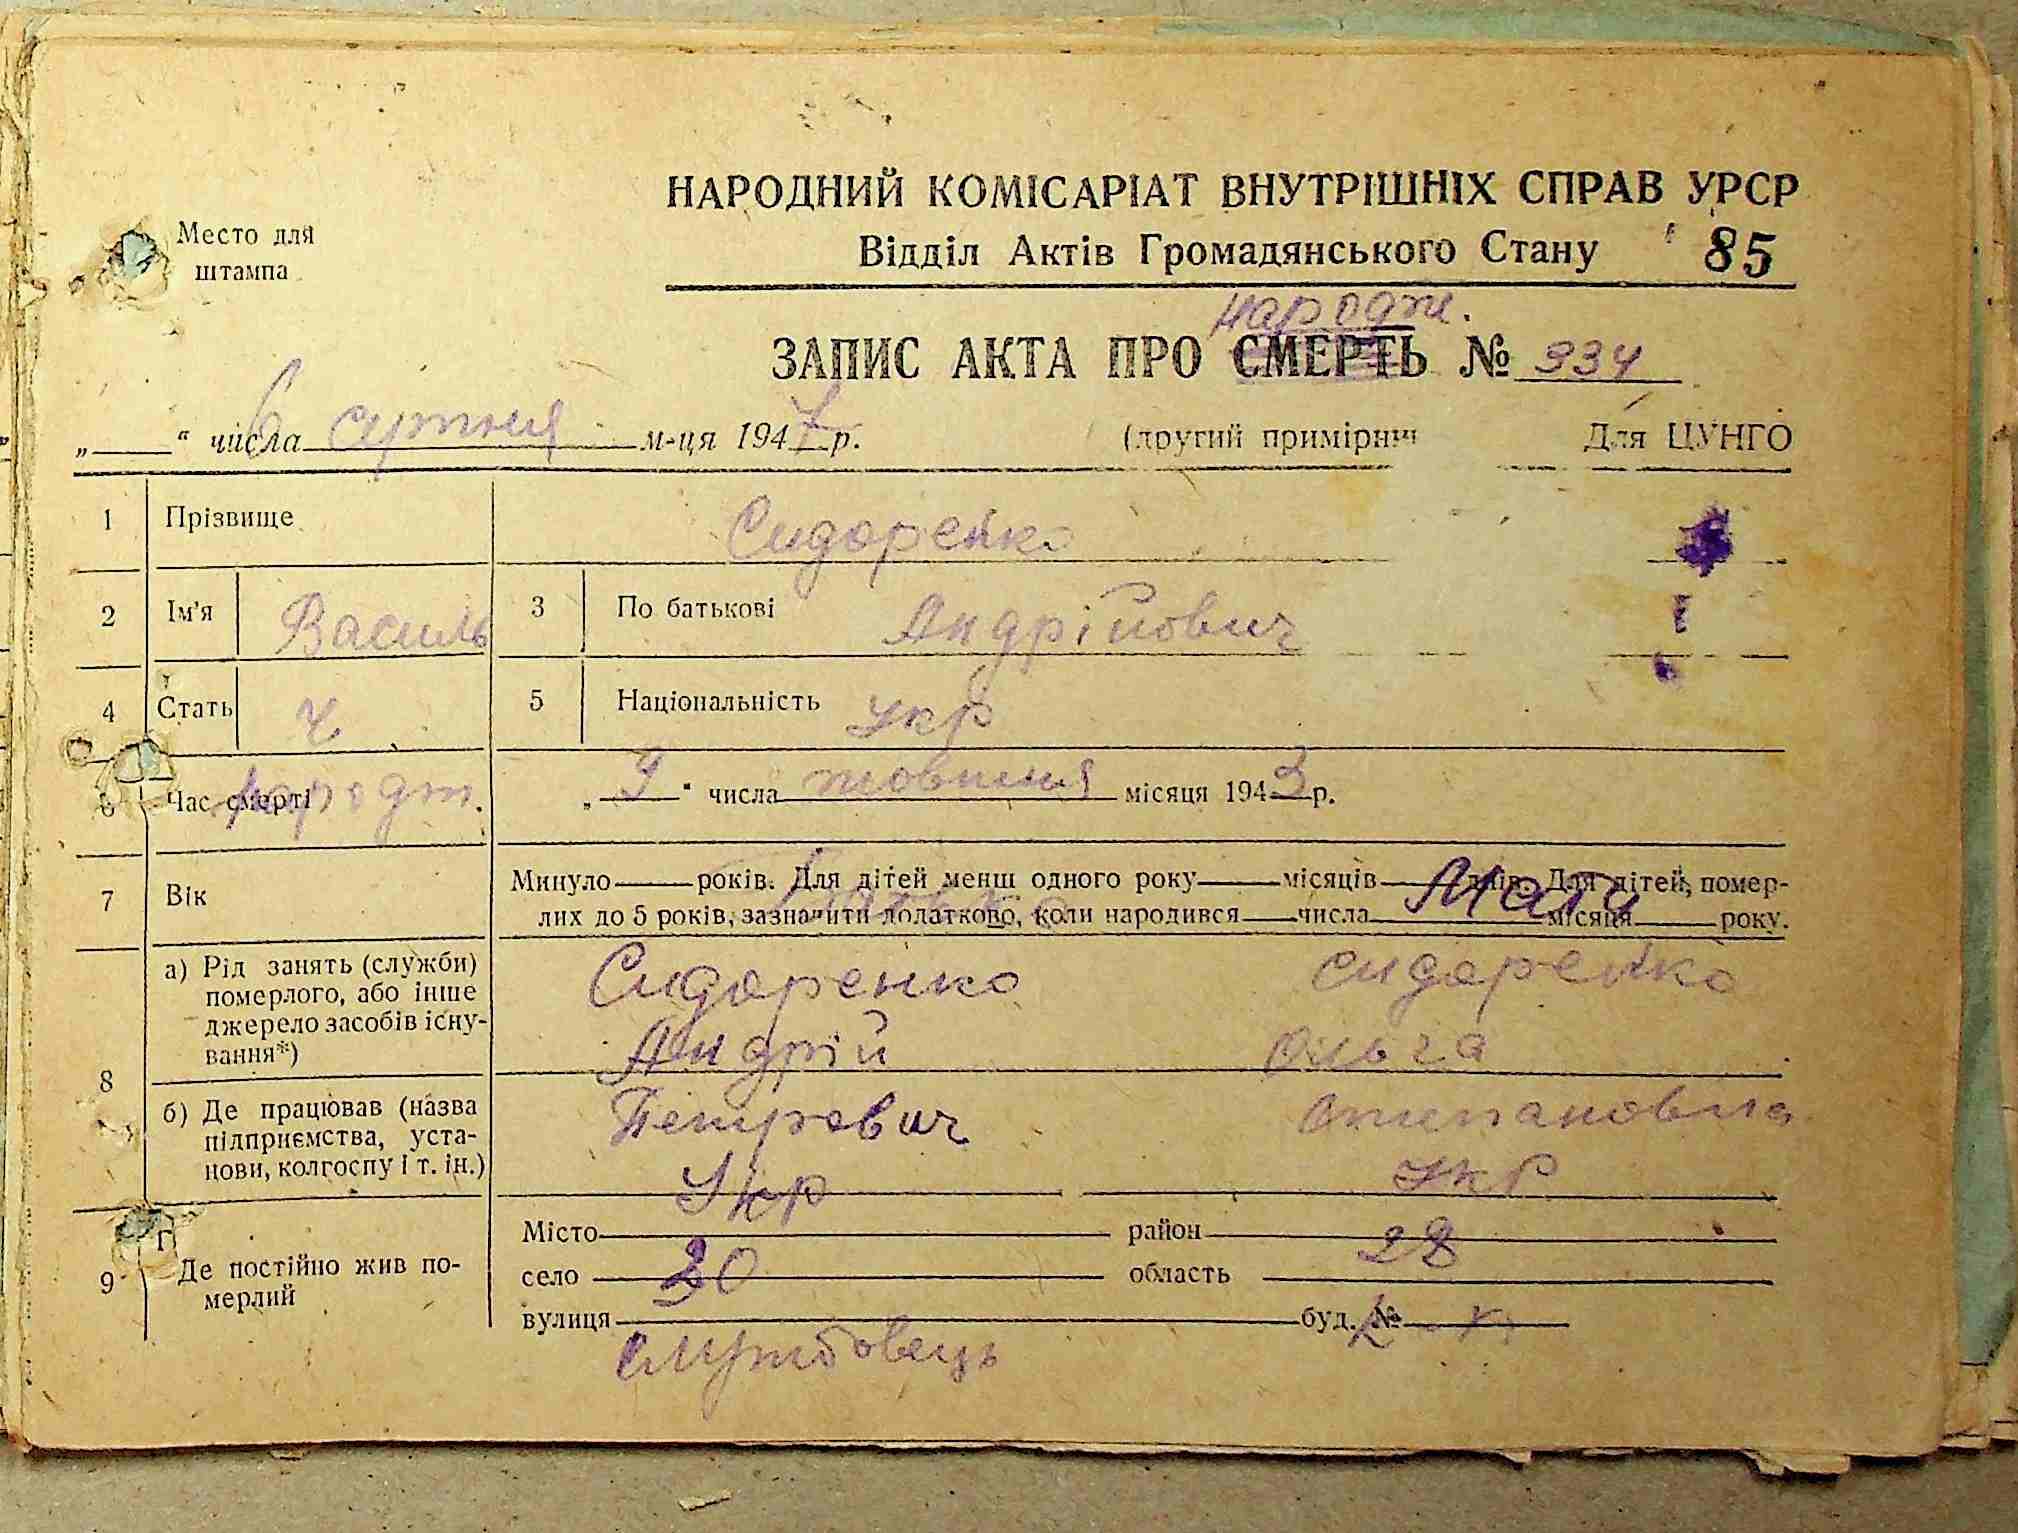 НАРОДНИЙ КОМІСАРІАТ ВНУТРІШНІХ СПРАВ УРСР
Место для штампа
Відділ Актів Громадянського Стану 85
народж.
ЗАПИС АКТА ПРО СМЕРТЬ № 334
„ “ числа 6 сутня м-ця 1947 р. (другий примірни Для ЦУНГО
1 Прізвище Сидоренко
2 Ім'я Василь 3 По батькові Андрійович
4 Стать ч 5 Національність укр
6 Час смерті народж. „ 9 “ числа жовтня місяця 1943 р.
7 Вік Минуло років. Для дітей менш одного року місяців днів. Для дітей, помер-
лих до 5 років, зазначити додатково, коли народився числа місяця року.
Батько Мати
8 а) Рід занять (служби) померлого, або інше джерело засобів існування*)
Сидоренко Сидоренко
Андрій Ольга
б) Де працював (назва підприємства, установи, колгоспу і т. ін.)
Петрович Степановна
Укр Укр
9 Де постійно жив померлий
Місто район
30 28
село область
вулиця буд. №
службовець к-к